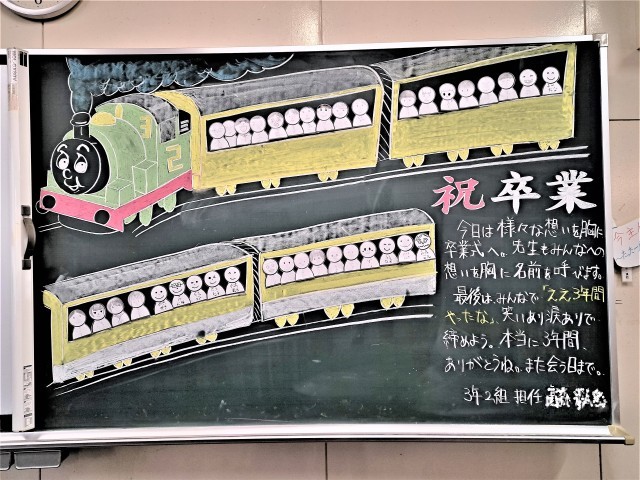 3 2
祝 卒業
今日は様々な想いを胸に
卒業式へ。先生もみんなへの
想いを胸に名前を呼びます。
最後は、みんなで「ええ3年間
やったな」、笑いあり涙ありで
締めよう。本当に3年間、
ありがとうね。また会う日まで。
3年2組 担任